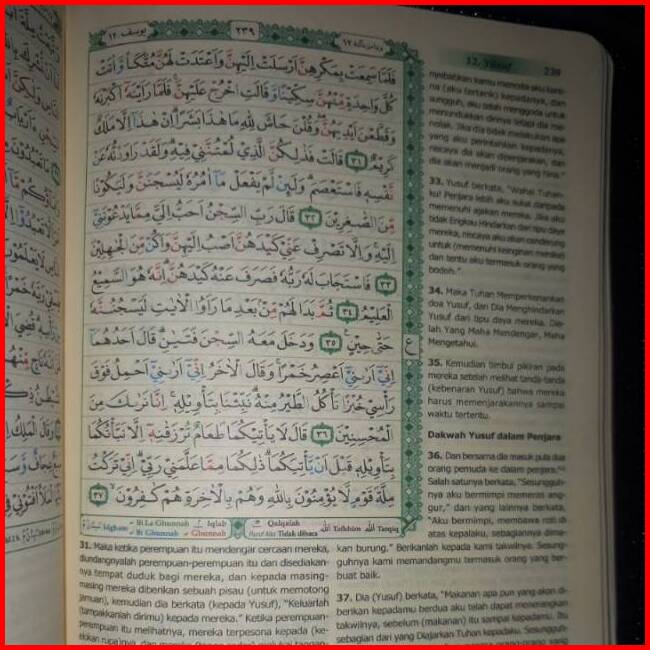 يوسف ١٢
٢٣٩
وما من دآبة ١٢
فَلَمَّا سَمِعَتْ بِمَكْرِهِنَّ اَرْسَلَتْ اِلَيْهِنَّ وَاَعْتَدَتْ لَهُنَّ مُتَّكَاً وَّاٰتَتْ
كُلَّ وَاحِدَةٍ مِّنْهُنَّ سِكِّيْنًا وَّقَالَتِ اخْرُجْ عَلَيْهِنَّ ۚ فَلَمَّا رَاَيْنَهٗٓ اَكْبَرْنَهٗ
وَقَطَّعْنَ اَيْدِيَهُنَّ ۖ وَقُلْنَ حَاشَ لِلّٰهِ مَا هٰذَا بَشَرًاۗ اِنْ هٰذَآ اِلَّا مَلَكٌ
كَرِيْمٌ ٣١ قَالَتْ فَذٰلِكُنَّ الَّذِيْ لُمْتُنَّنِيْ فِيْهِ ۗ وَلَقَدْ رَاوَدْتُّهٗ عَنْ
نَّفْسِهٖ فَاسْتَعْصَمَ ۗ وَلَىِٕنْ لَّمْ يَفْعَلْ مَآ اٰمُرُهٗ لَيُسْجَنَنَّ وَلَيَكُوْنًا
مِّنَ الصّٰغِرِيْنَ ٣٢ قَالَ رَبِّ السِّجْنُ اَحَبُّ اِلَيَّ مِمَّا يَدْعُوْنَنِيْٓ
اِلَيْهِ ۚ وَاِلَّا تَصْرِفْ عَنِّيْ كَيْدَهُنَّ اَصْبُ اِلَيْهِنَّ وَاَكُنْ مِّنَ الْجٰهِلِيْنَ
٣٣ فَاسْتَجَابَ لَهٗ رَبُّهٗ فَصَرَفَ عَنْهُ كَيْدَهُنَّ ۗ اِنَّهٗ هُوَ السَّمِيْعُ
الْعَلِيْمُ ٣٤ ثُمَّ بَدَا لَهُمْ مِّنْۢ بَعْدِ مَا رَاَوُا الْاٰيٰتِ لَيَسْجُنُنَّهٗ
حَتّٰى حِيْنٍ ٣٥ وَدَخَلَ مَعَهُ السِّجْنَ فَتَيٰنِ ۗ قَالَ اَحَدُهُمَآ
اِنِّيْٓ اَرٰىنِيْٓ اَعْصِرُ خَمْرًا ۚ وَقَالَ الْاٰخَرُ اِنِّيْٓ اَرٰىنِيْٓ اَحْمِلُ فَوْقَ
رَأْسِيْ خُبْزًا تَأْكُلُ الطَّيْرُ مِنْهُ ۗ نَبِّئْنَا بِتَأْوِيْلِهٖ ۚ اِنَّا نَرٰىكَ مِنَ
الْمُحْسِنِيْنَ ٣٦ قَالَ لَا يَأْتِيْكُمَا طَعَامٌ تُرْزَقٰنِهٖٓ اِلَّا نَبَّأْتُكُمَا
بِتَأْوِيْلِهٖ قَبْلَ اَنْ يَّأْتِيَكُمَا ۗ ذٰلِكُمَا مِمَّا عَلَّمَنِيْ رَبِّيْ ۗ اِنِّيْ تَرَكْتُ
مِلَّةَ قَوْمٍ لَّا يُؤْمِنُوْنَ بِاللّٰهِ وَهُمْ بِالْاٰخِرَةِ هُمْ كٰفِرُوْنَ ٣٧
ع
Idgham
Bi La Ghunnah
Bi Ghunnah
Iqlab
Ghunnah
Qalqalah
Tidak dibaca
Tafkhim
Tarqiq
31. Maka ketika perempuan itu mendengar cercaan mereka,
diundangnyalah perempuan-perempuan itu dan disediakan-
nya tempat duduk bagi mereka, dan kepada masing-
masing mereka diberikan sebuah pisau (untuk memotong
jamuan), kemudian dia berkata (kepada Yusuf), "Keluarlah
(tampakkanlah dirimu) kepada mereka." Ketika perempuan-
perempuan itu melihatnya, mereka terpesona kepada (ke-
12. Yusuf
239
kamu mencela aku kare-
na (aku tertarik) kepadanya, dan
sungguh, aku telah menggoda untuk
menundukkan dirinya tetapi dia me-
nolak. Jika dia tidak melakukan apa
yang aku perintahkan kepadanya,
niscaya dia akan dipenjarakan, dan
dia akan menjadi orang yang hina."
33. Yusuf berkata, "Wahai Tuhan-
ku! Penjara lebih aku sukai daripada
memenuhi ajakan mereka. Jika aku
tidak Engkau Hindarkan dari tipu daya
mereka, niscaya aku akan cenderung
untuk (memenuhi keinginan mereka)
dan tentu aku termasuk orang yang
bodoh."
34. Maka Tuhan Memperkenankan
doa Yusuf, dan Dia Menghindarkan
Yusuf dari tipu daya mereka. Dia-
lah Yang Maha Mendengar, Maha
Mengetahui.
35. Kemudian timbul pikiran pada
mereka setelah melihat tanda-tanda
(kebenaran Yusuf) bahwa mereka
harus memenjarakannya sampai
waktu tertentu.
Dakwah Yusuf dalam Penjara
36. Dan bersama dia masuk pula dua
orang pemuda ke dalam penjara.
Salah satunya berkata, "Sesungguh-
nya aku bermimpi memeras ang-
gur," dan yang lainnya berkata,
"Aku bermimpi, membawa roti di
atas kepalaku, sebagiannya dima-
kan burung." Berikanlah kepada kami takwilnya. Sesung-
guhnya kami memandangmu termasuk orang yang ber-
buat baik.
37. Dia (Yusuf) berkata, "Makanan apa pun yang akan di-
berikan kepadamu berdua aku telah dapat menerangkan
takwilnya, sebelum (makanan) itu sampai kepadamu. Itu
sebagian dari yang Diajarkan Tuhan kepadaku. Sesungguh-